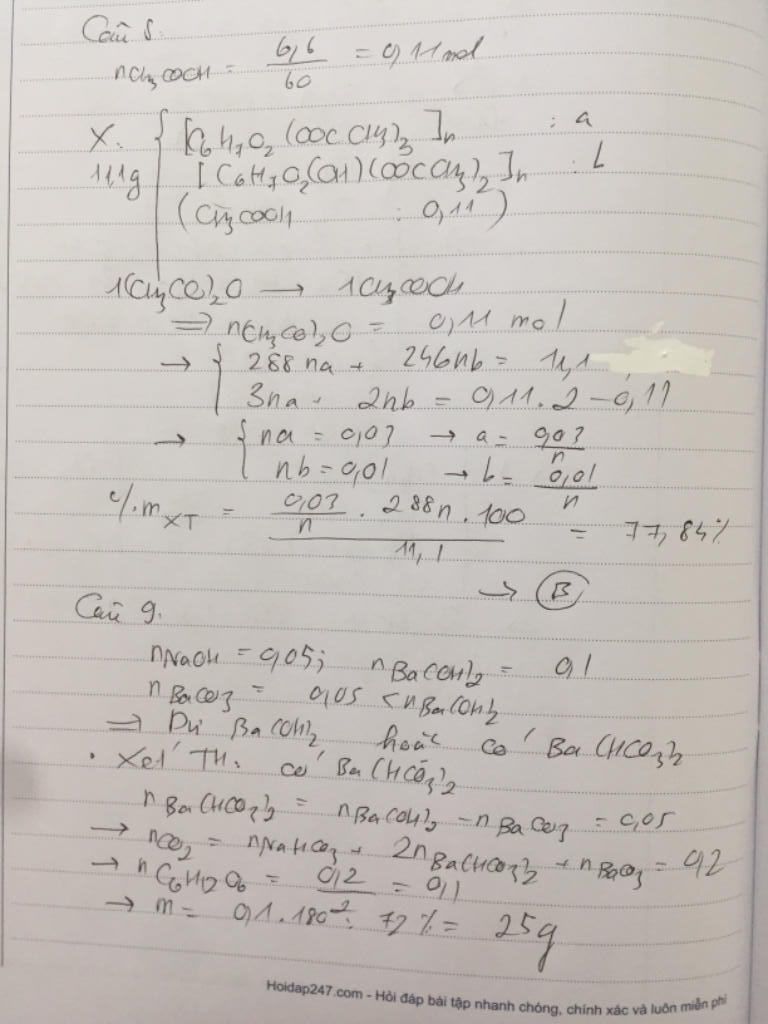 Câu 8.
nCH3COOH = 6,6/60 = 0,11 mol
X. { [C6H7O2(OOCCH3)3]n : a
11,1g [C6H7O2(OH)(OOCCH3)2]n : b
(CH3COOH : 0,11)
1(CH3CO)2O → 1CH3COOH
⇒ n(CH3CO)2O = 0,11 mol
→ { 288na + 246nb = 11,1
3na + 2nb = 0,11.2 - 0,11
→ { na = 0,03 → a = 0,03/n
nb = 0,01 → b = 0,01/n
%mXT = 0,03/n . 288n . 100 / 11,1 = 77,84%
→ B
Câu 9.
nNaOH = 0,05; nBa(OH)2 = 0,1
nBaCO3 = 0,05 < nBa(OH)2
⇒ Dư Ba(OH)2 hoặc có Ba(HCO3)2
• Xét TH: có Ba(HCO3)2
nBa(HCO3)2 = nBa(OH)2 - nBaCO3 = 0,05
→ nCO2 = nNaHCO3 + 2nBa(HCO3)2 + nBaCO3 = 0,2
→ nC6H12O6 = 0,2/2 = 0,1
→ m = 0,1.180 : 72% = 25g
Hoidap247.com - Hỏi đáp bài tập nhanh chóng, chính xác và luôn miễn phí